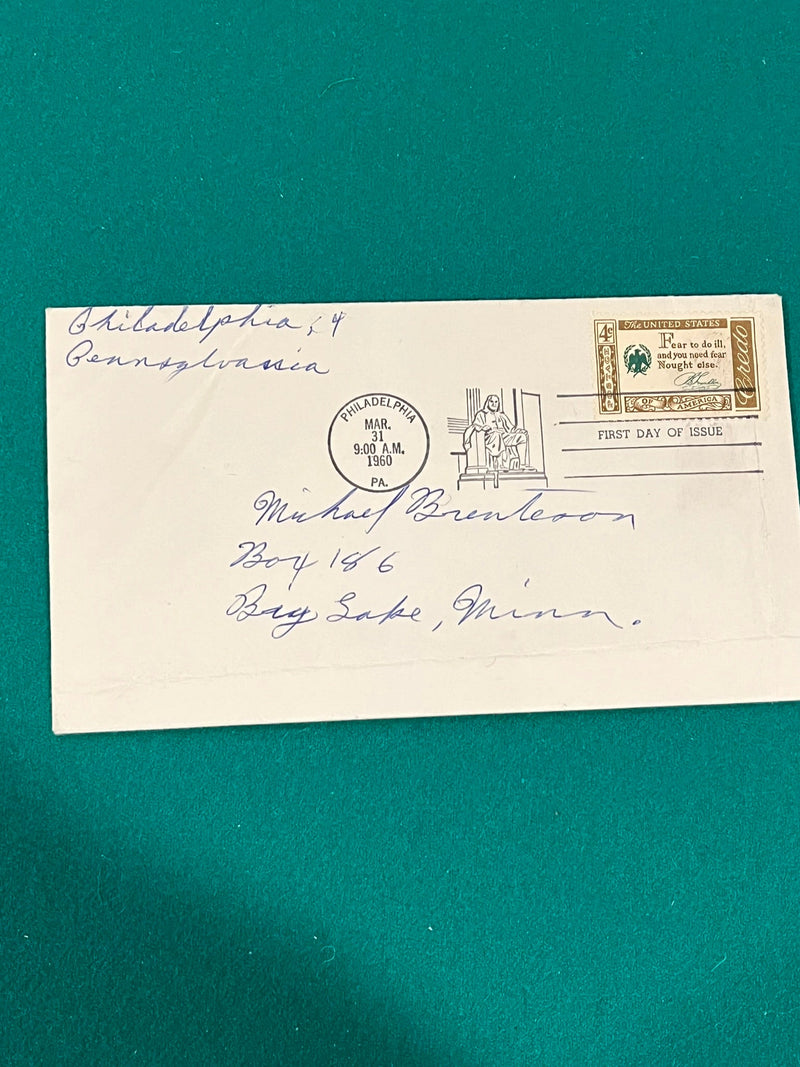 Philadelphia, 4
Pennsylvania
4¢
The UNITED STATES
Fear to do ill,
and you need fear
Nought else.
Credo
OF AMERICA
PHILADELPHIA
MAR.
31
9:00 A.M.
1960
PA.
FIRST DAY OF ISSUE
Michael Brenteson
Box 186
Big Lake, Minn.